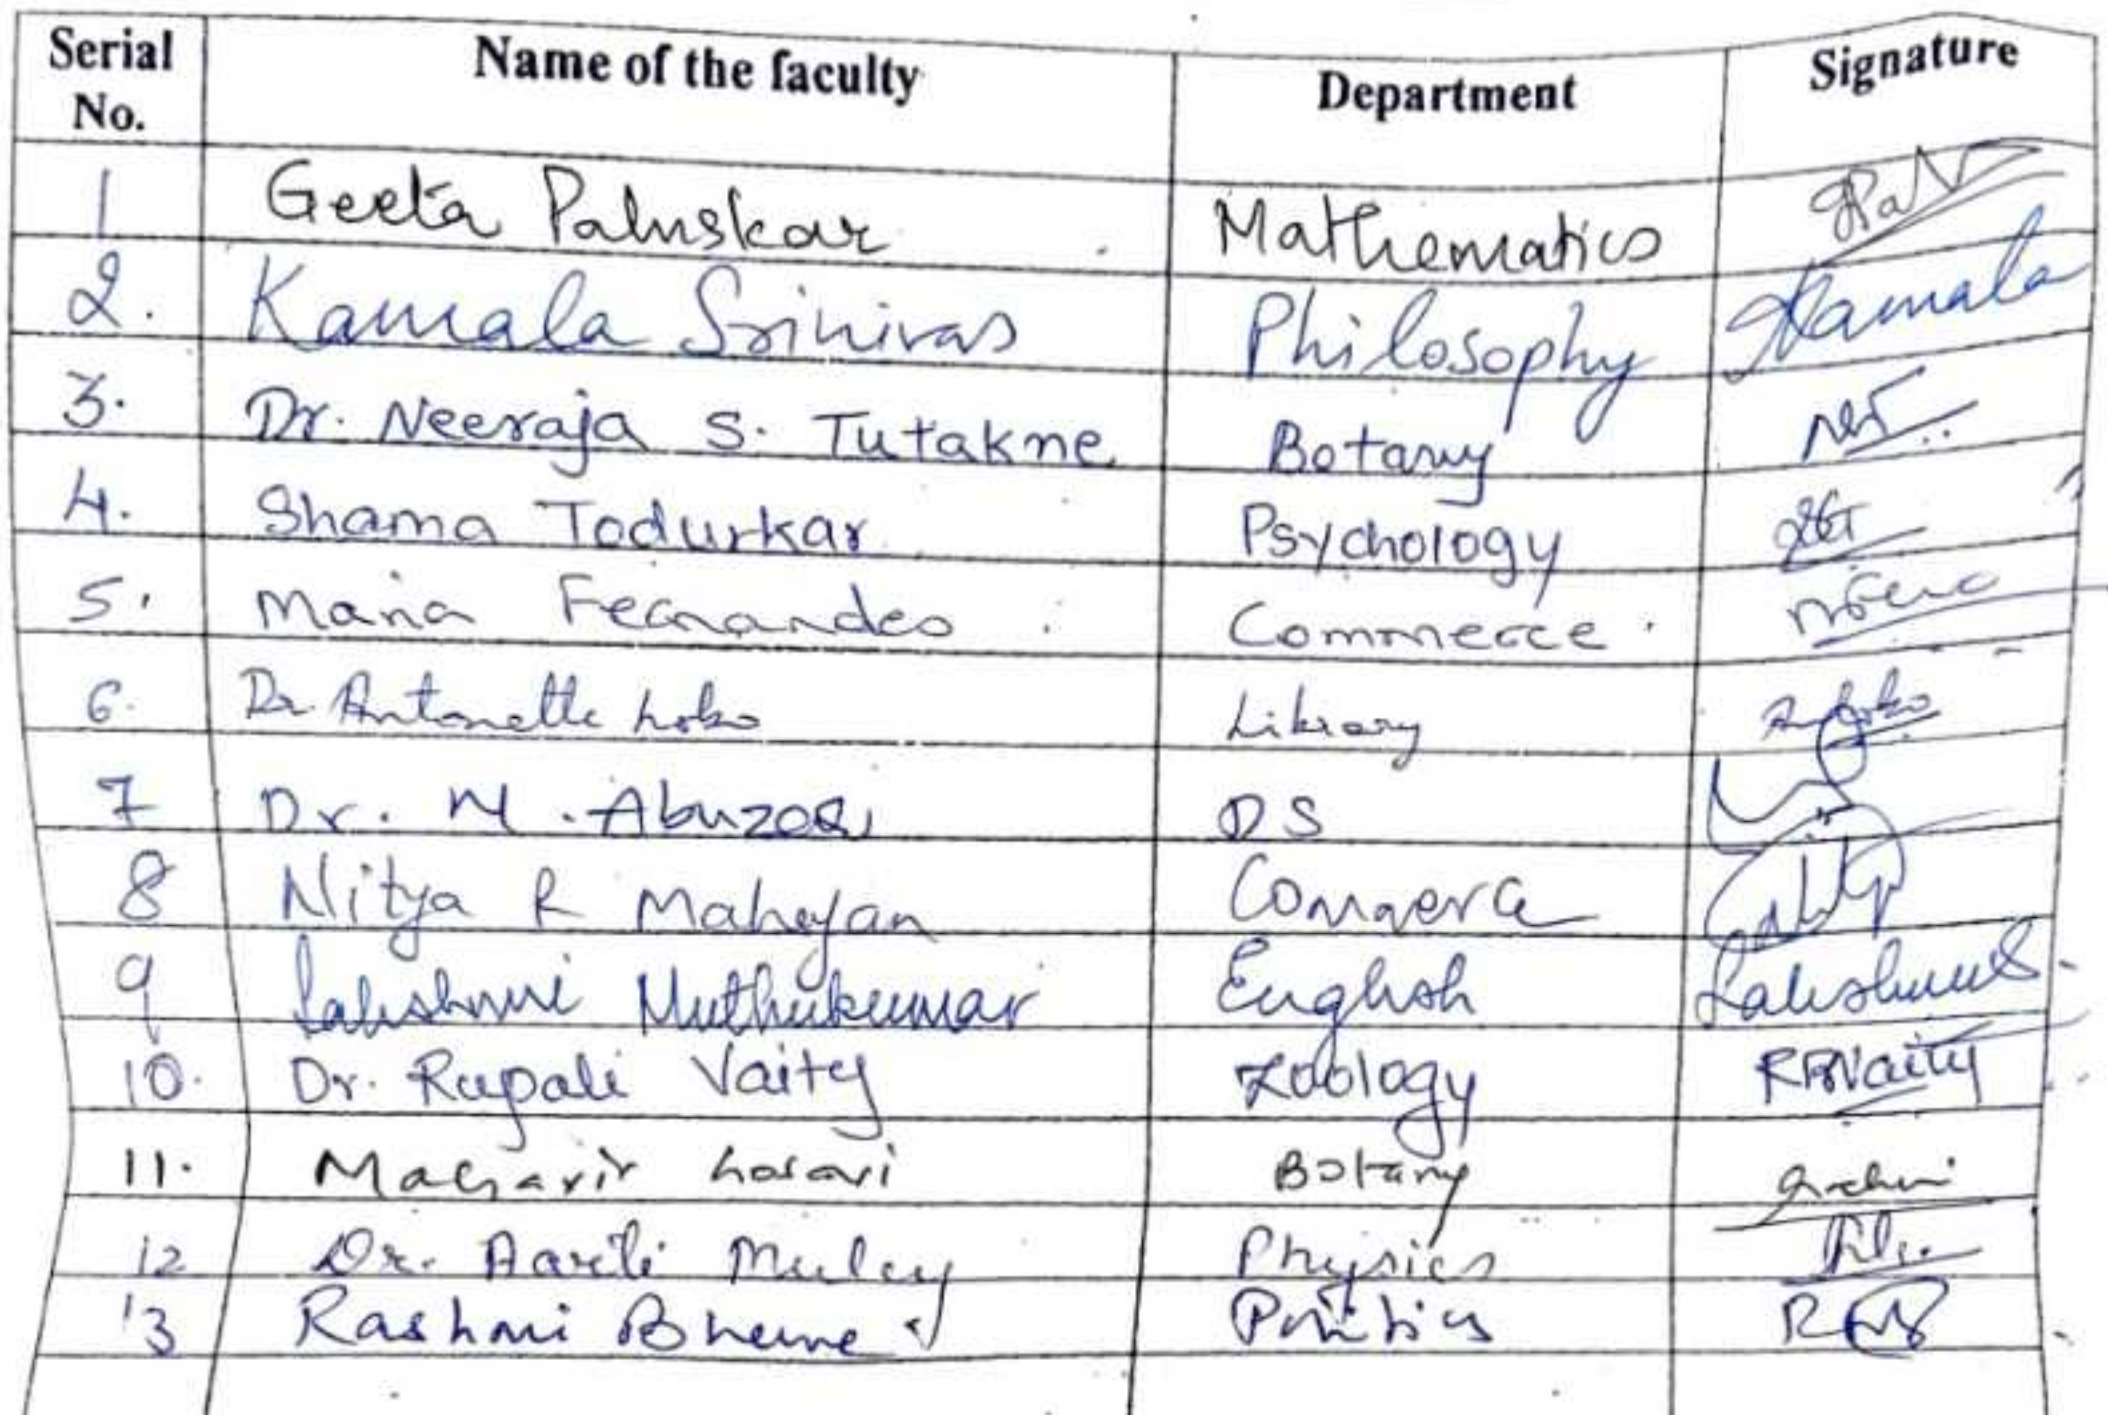 Serial No. Name of the faculty Department Signature
1 Geeta Paluskar Mathematics
2. Kamala Srinivas Philosophy Kamala
3. Dr. Neeraja S. Tutakne Botany
4. Shama Todurkar Psychology
5. Maria Fernandes Commerce
6. Dr. Antonette Lobo Library
7 Dr. M. Abuzar DS
8 Nitya R Mahajan Commerce
9 Lakshmi Muthukumar English Lakshmi
10. Dr. Rupali Vaity Zoology RBVaity
11. Mahavir Botany
12 Dr. Aarti Muley Physics
13 Rashmi Bhure Politics